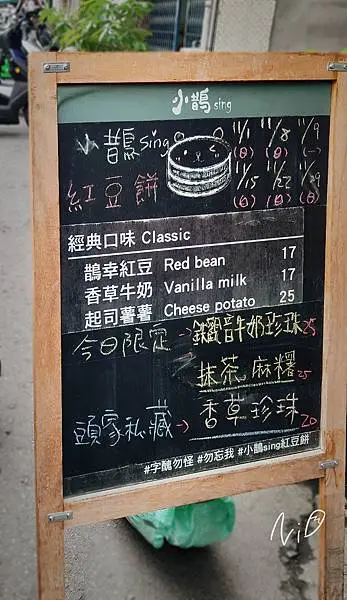 小鵲sing
小鵲sing
11/1 11/8 11/9
(日) (日) (一)
紅豆餅
11/15 11/22 11/29
(日) (日) (日)
經典口味 Classic
鵲幸紅豆 Red bean 17
香草牛奶 Vanilla milk 17
起司薯薯 Cheese potato 25
今日限定 → 鐵觀音牛奶珍珠 25
抹茶麻糬 25
頭家私藏 → 香草珍珠 20
#字醜勿怪 #勿忘我 #小鵲sing紅豆餅